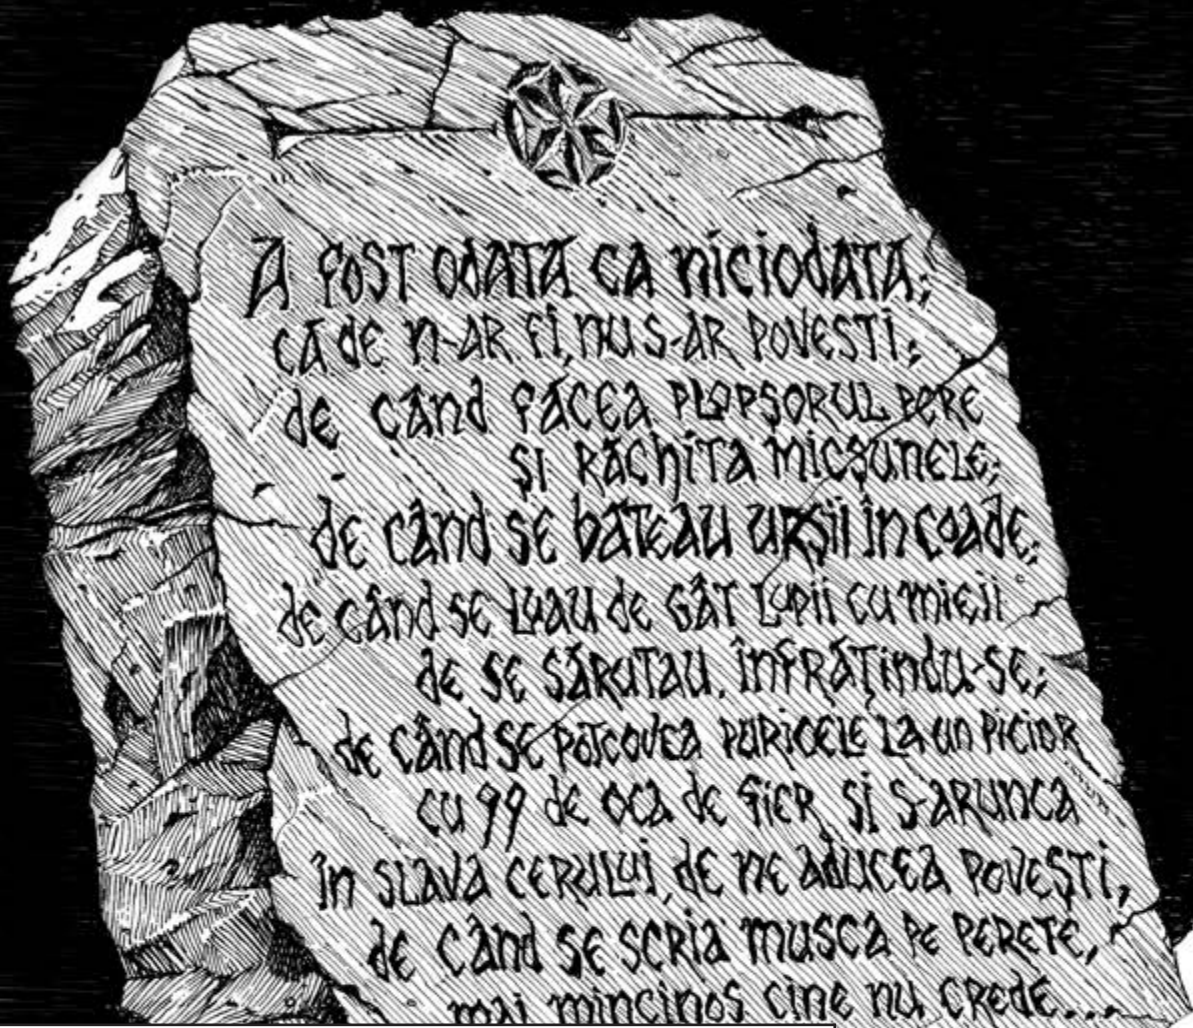 A FOST ODATĂ CA NICIODATĂ;
CĂ DE N-AR FI, NU S-AR POVESTI;
DE CÂND FĂCEA PLOPȘORUL PERE
ȘI RĂCHITA MICȘUNELE;
DE CÂND SE BĂTEAU URȘII ÎN COADE;
DE CÂND SE LUAU DE GÂT LUPII CU MIEII
DE SE SĂRUTAU, ÎNFRĂȚINDU-SE;
DE CÂND SE POTCOVEA PURICELE LA UN PICIOR
CU 99 DE OCA DE FIER ȘI S-ARUNCA
ÎN SLAVA CERULUI, DE NE ADUCEA POVEȘTI,
DE CÂND SE SCRIA MUSCA PE PERETE,
MAI MINCINOS CINE NU CREDE...